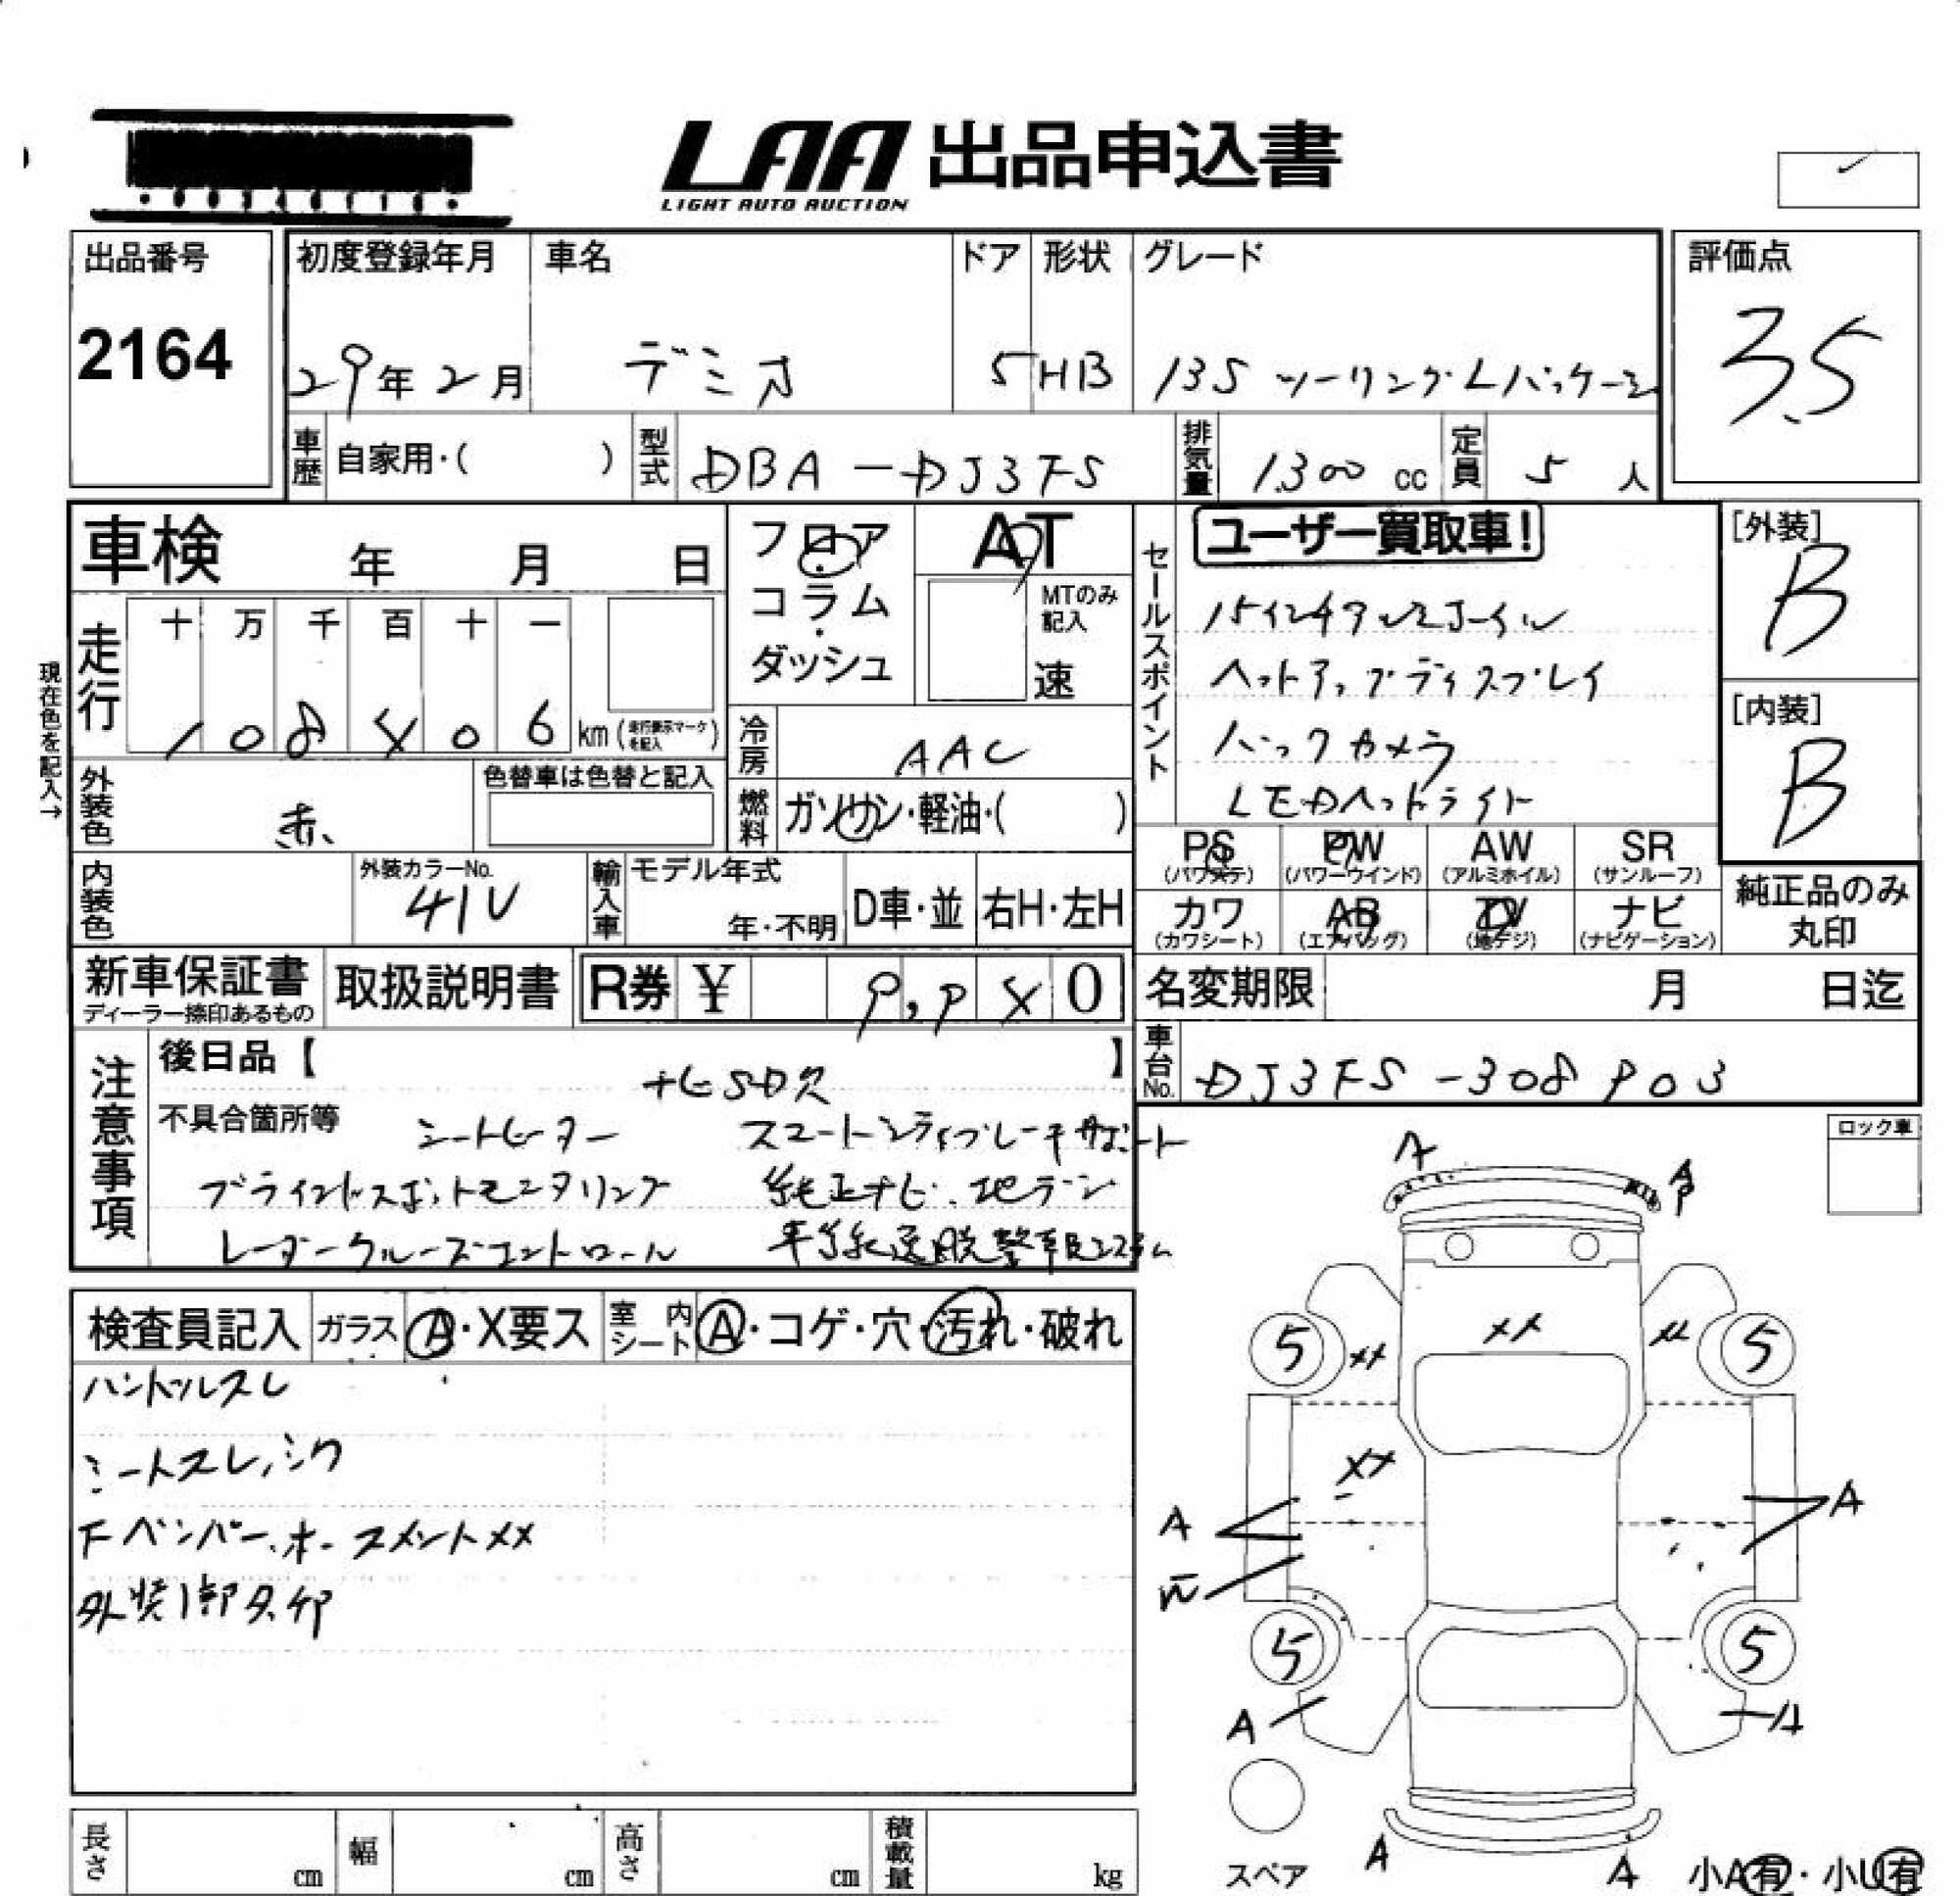 LAA 出品申込書
LIGHT AUTO AUCTION
出品番号
2164
初度登録年月
29年2月
車名
デミオ
ドア
5
形状
HB
グレード
13S ツーリングLパッケージ
評価点
3.5
車歴 自家用・( )
型式 DBA-DJ3FS
排気量 1300 cc
定員 5 人
車検 年 月 日
フロア
コラム
ダッシュ
AT
MTのみ記入
速
セールスポイント
ユーザー買取車!
15インチアルミホイル
ヘットアップディスプレイ
バックカメラ
LEDヘットライト
[外装]
B
[内装]
B
現在色を記入→
走行
十 万 千 百 十 一
km(走行表示マークを記入)
冷房 AAC
外装色 赤
色替車は色替と記入
燃料 ガソリン・軽油・( )
内装色
外装カラーNo.
41V
輸入車
モデル年式
年・不明
D車・並
右H・左H
PS (パワステ)
PW (パワーウインド)
AW (アルミホイル)
SR (サンルーフ)
カワ (カワシート)
AB (エアバッグ)
TV (地デジ)
ナビ (ナビゲーション)
純正品のみ丸印
新車保証書
ディーラー捺印あるもの
取扱説明書
R券 ¥
名変期限 月 日迄
車台No. DJ3FS-308903
注意事項
後日品【 】
ナビSD欠
不具合箇所等
シートヒーター スマートシティブレーキサポート
ブラインドスポットモニタリング 純正ナビ、地デジ
レーダークルーズコントロール 車線逸脱警報システム
ロック車
検査員記入
ガラス A・X要ス
室内シート A・コゲ・穴・汚れ・破れ
ハンドルスレ
シートスレ,シワ
FバンパーホースメントXX
外装1部タ.印
A
XX
XX
XX
5
5
5
5
A
A
W
A
A
A
A
スペア
小A有・小U有
長さ cm
幅 cm
高さ cm
積載量 kg